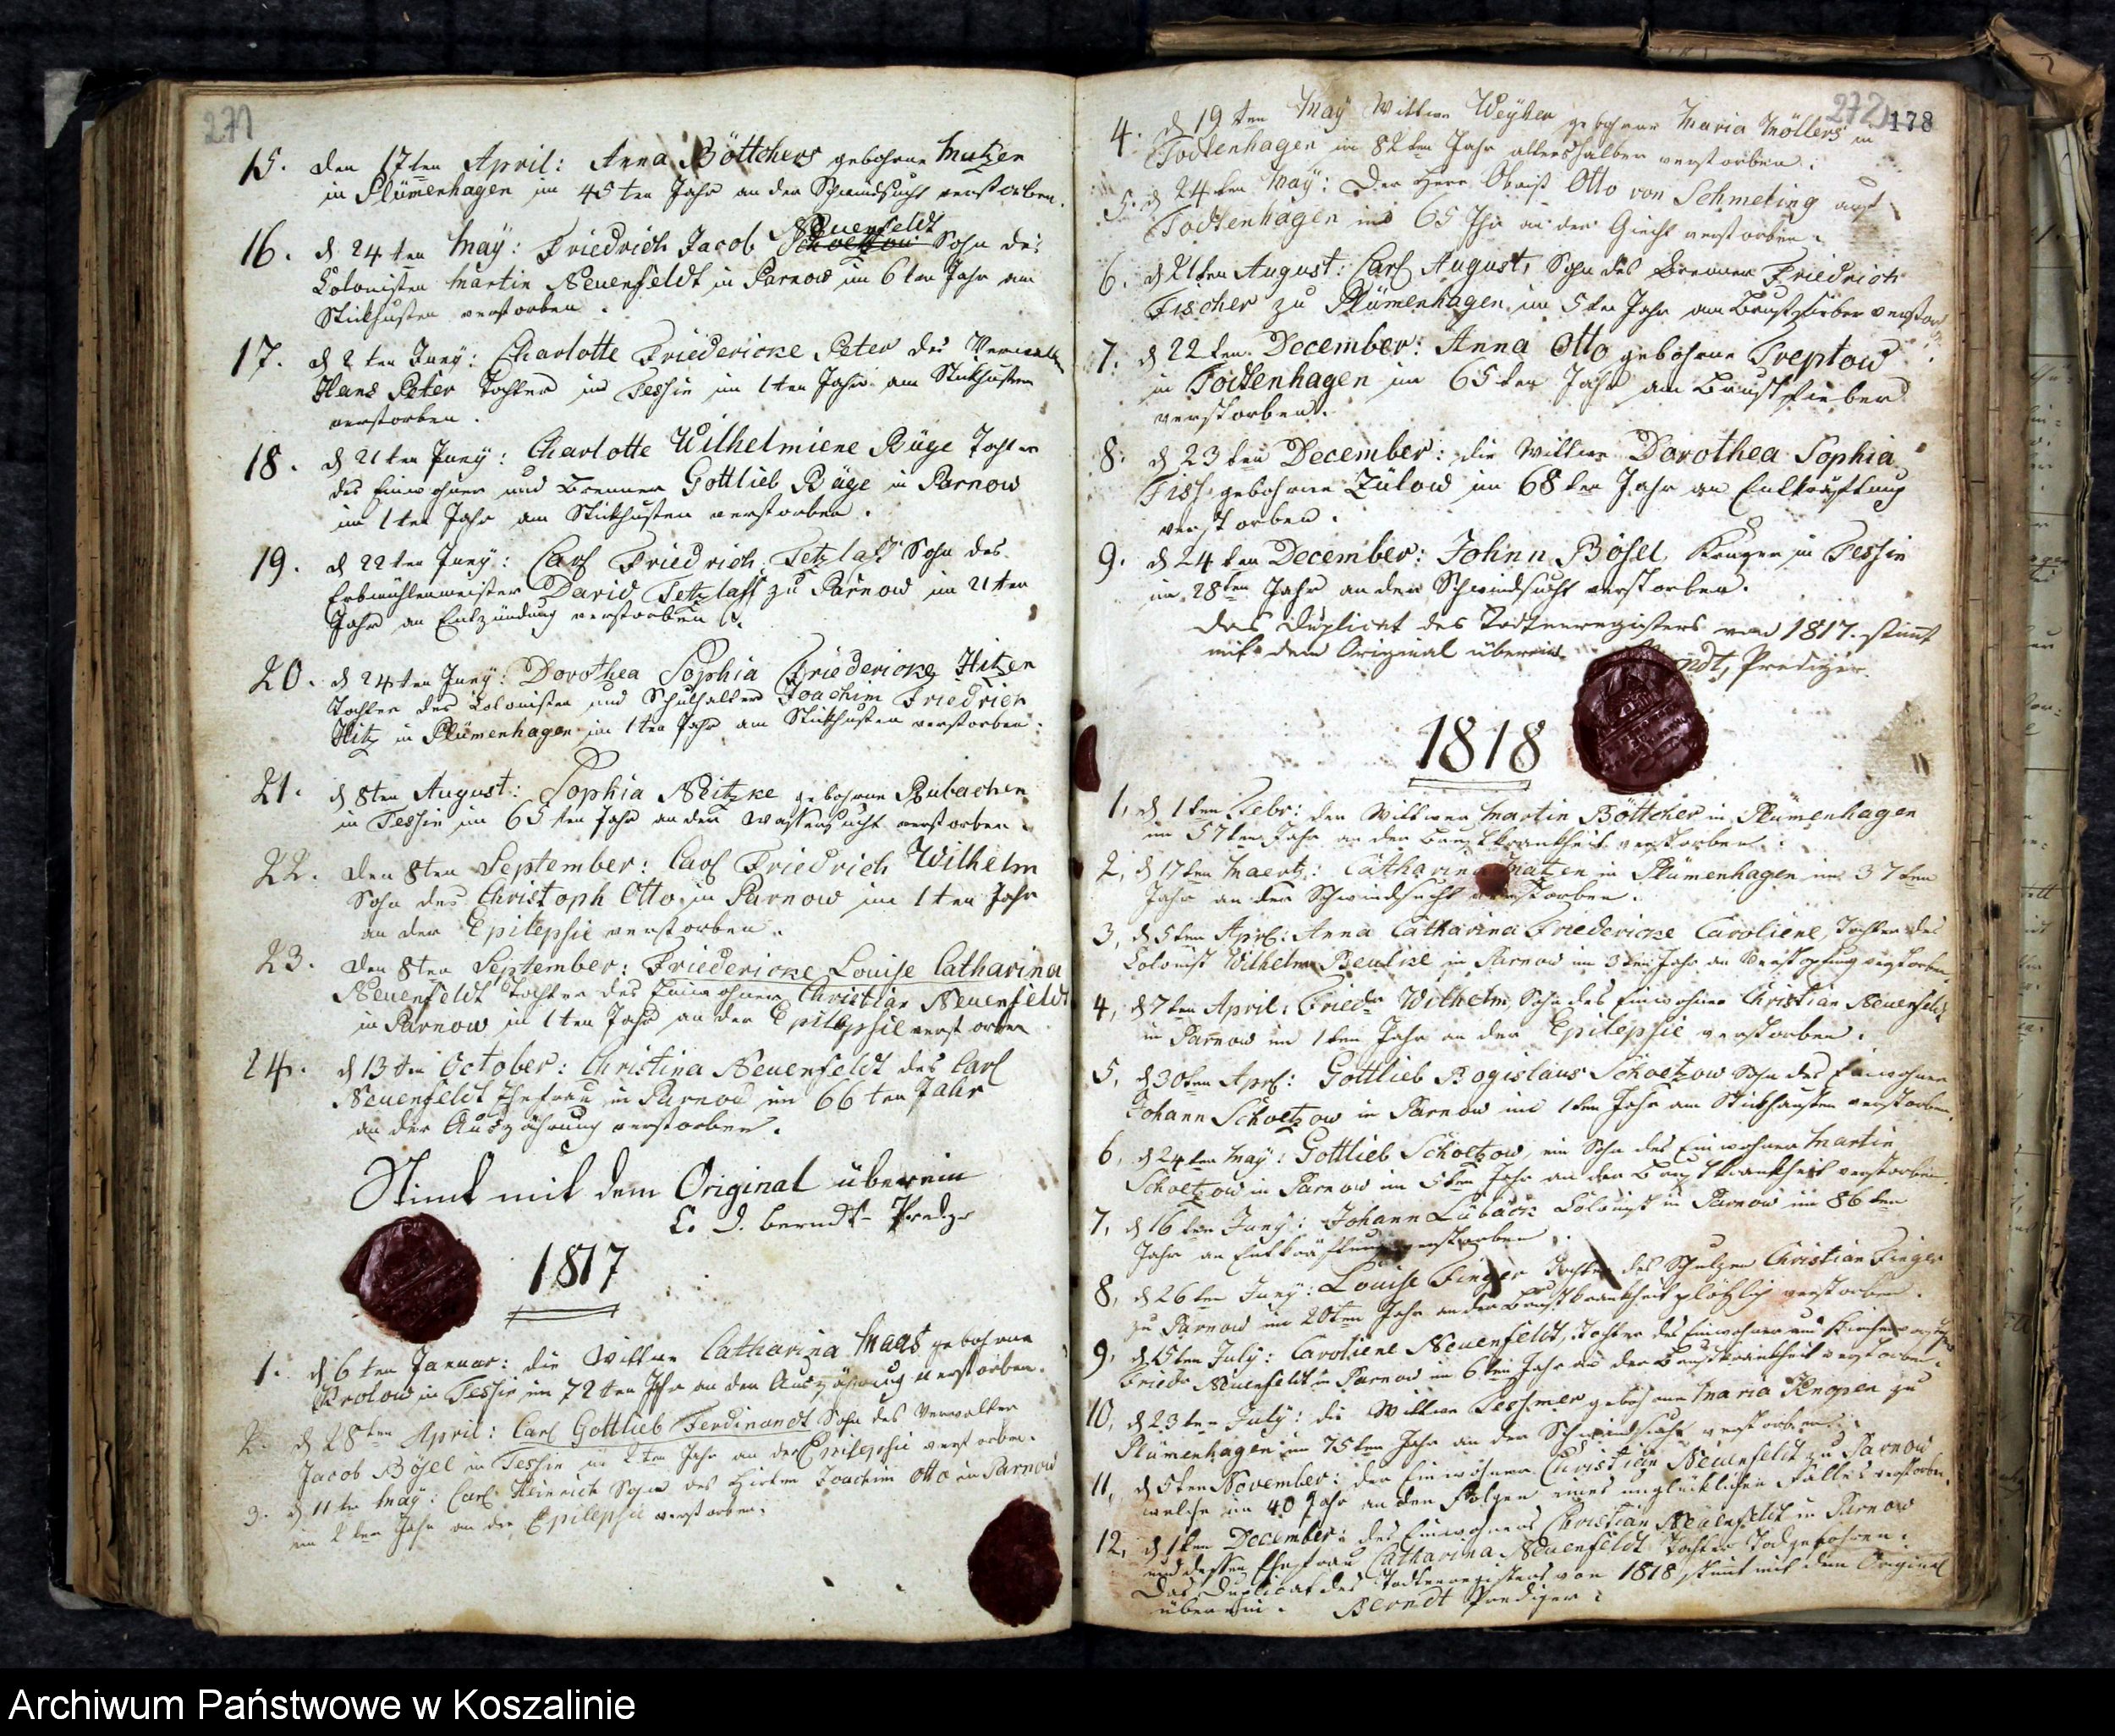 271
15. den 17ten April: Anna Böttchers gebohrne Mutzen
in Plümenhagen im 45ten Jahr an der Schwindsucht verstorben.
16. d 24ten May: Friedrich Jacob Neuenfeldt Sohn des
Colonisten Martin Neuenfeldt in Parnow im 6ten Jahr am
Stickhusten verstorben.
17. d 2ten Juny: Charlotte Friedericke Peter des
Hans Peter Tochter in Tessin im 1ten Jahr am Stickhusten
verstorben.
18. d 21ten Juny: Charlotte Wilhelmiene Büge Tochter
des Einwohner und Brenner Gottlieb Büge in Parnow
im 1ten Jahr am Stickhusten verstorben.
19. d 22ten Juny: Carl Friedrich Tetzlaff Sohn des
Erbmühlenmeister David Tetzlaff zu Parnow im 21ten
Jahr an Entzündung verstorben.
20. d 24ten Juny: Dorothea Sophia Friedericke Hitzen
Tochter des Colonisten und Schulhalter Joachim Friedrich
Hitz in Plümenhagen im 1ten Jahr am Stickhusten verstorben.
21. d 8ten August: Sophia Neitzke gebohrne Rubachen
in Tessin im 65ten Jahr an der Wassersucht verstorben.
22. den 8ten September: Carl Friedrich Wilhelm
Sohn des Christoph Otto in Parnow im 1ten Jahr
an der Epilepsie verstorben.
23. den 8ten September: Friedericke Louise Catharina
Neuenfeldt Tochter des Einwohner Christian Neuenfeldt
in Parnow im 1ten Jahr an der Epilepsie verstorben
24. d 13ten October: Christina Neuenfeldt des Carl
Neuenfeldt Ehefrau in Parnow im 66ten Jahr
an der Auszährung verstorben.
Stimt mit dem Original überein
C. D. Berndt Predgr
1817
1. d 6ten Januar: die Wittwe Catharina Maas gebohrne
Krolow in Tessin im 72ten Jhr an der Auszährung verstorben.
2. d 28ten April: Carl Gottlieb Ferdinandt Sohn des Verwalter
Jacob Bösel in Tessin im 2ten Jahr an der Epilepsie verstorben.
3. d 11ten May: Carl Heinrich Sohn des Hirten Joachim Otto in Parnow
im 2ten Jahr an der Epilepsie verstorben.
272 178
4. d 19ten May Wittwe Weyher gebohrne Maria Möllers in
Todtenhagen im 82ten Jahr altershalber verstorben.
5. d 24ten May: Der Herr Obrist Otto von Schmeling auf
Todtenhagen im 65 Jhr an der Giecht verstorben.
6. d 21ten August: Carl August, Sohn des Brenner Friedrich
Fischer zu Plümenhagen im 5ten Jahr am Brustfieber verstorb
7. d 22ten December: Anna Otto gebohrne Treptow
in Todtenhagen im 65ten Jahr am Brustfieber
verstorben.
8. d 23ten December: die Wittwe Dorothea Sophia
Fiss gebohrne Zülow im 68ten Jahr an Entkräftung
verstorben.
9. d 24ten December: Johnn Bösel Krüger in Tessin
im 28ten Jahr an der Schwindsucht verstorben.
Das Duplicat des Todtenregisters von 1817. stimt
mit dem Original überein Prediger.
1818
1, d 1ten Febr: der Wittwer Martin Böttcher in Plümenhagen
im 57ten Jahr an der Brustkrankheit verstorben.
2, d 17ten Maertz: Catharina Matzen in Plümenhagen im 37ten
Jahr an der Schwindsucht verstorben.
3, d 5ten Aprl: Anna Catharina Friedericke Caroliene, Tochter des
Colonist Wilhelm Beutke in Parnow im 3ten Jahr an Verstopfung verstorben.
4, d 7ten April: Friedr Wilhelm, Sohn des Einwohner Christian Neuenfeldt
in Parnow im 1ten Jahr an der Epilepsie verstorben.
5, d 30ten Aprl: Gottlieb Bogislaus Schoetzow Sohn des Einwohner
Johann Schoetzow in Parnow im 1ten Jahr am Stickhusten verstorben.
6, d 24ten May: Gottlieb Schoetzow, ein Sohn des Einwohner Martin
Schoetzow in Parnow im 5ten Jahr an der Brustkrankheit verstorben.
7, d 16ten Juny: Johann Lüback Colonist in Parnow im 86ten
Jahr an Entkräftung verstorben.
8, d 26ten Juny: Louise Finger Tochter des Schulzen Christian Finger
zu Parnow im 20ten Jahr an der Brustkrankheit plötzlich verstorben.
9, d 15ten July: Caroliene Neuenfeldt, Tochter des Einwohner und
Friedr Neuenfeldt in Parnow im 6ten Jahr an der Brustkrankheit verstorben.
10, d 23ten July: die Wittwe Leshmer gebohrne Maria Knopen zu
Plümenhagen im 75ten Jahr an der Schwindsucht verstorben.
11, d 5ten November: der Einwohner Christian Neuenfeldt zu Parnow
welcher im 40 Jahr an den Folgen eines unglücklichen Falles verstorben.
12, d 1ten December: des Einwohners Christian Neuenfeldt in Parnow
und dessen Ehefrau Catharina Neuenfeldt Tochter Todgebohren.
Das Duplicat des Todtenregisters von 1818 stimt mit dem Original
überein. Berndt Prediger.
Archiwum Państwowe w Koszalinie